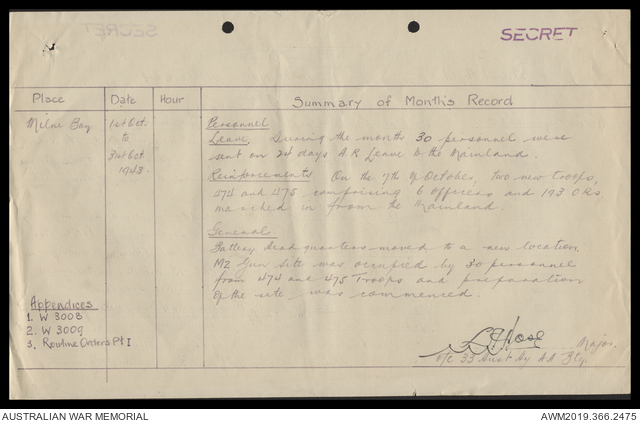 SECRET
Place Date Hour Summary of Month's Record
Milne Bay 1st Oct. Personnel
to Leave. During the months 30 personnel were
31st Oct sent on 24 days A.R Leave to the Mainland.
1943. Reinforcements On the 7th of October, two new troops,
474 and 475 comprising 6 Officers and 193 ORs
marched in from the Mainland.
General.
Battery Headquarters moved to a new location.
M2 Gun Site was occupied by 30 personnel
from 474 and 475 Troops and preparation
of the site was commenced.
Appendices
1. W 3008
2. W 3009
3. Routine Orders Pt I
Major.
O/C 33 Aust Hy AA Bty.
AUSTRALIAN WAR MEMORIAL
AWM2019.366.2475